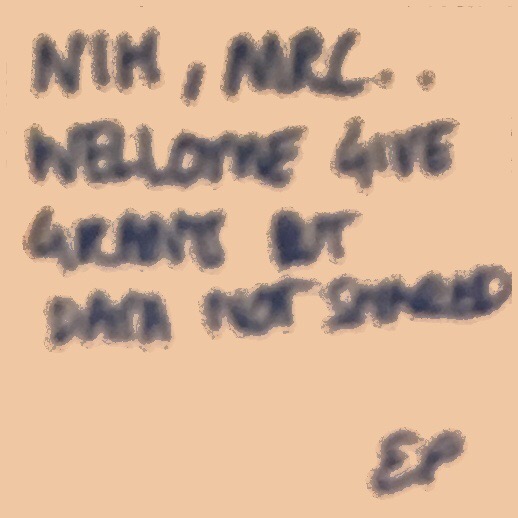 NIH, MRC..
WELLCOME GIVE
GRANT BUT
DATA NOT SHARED
EP